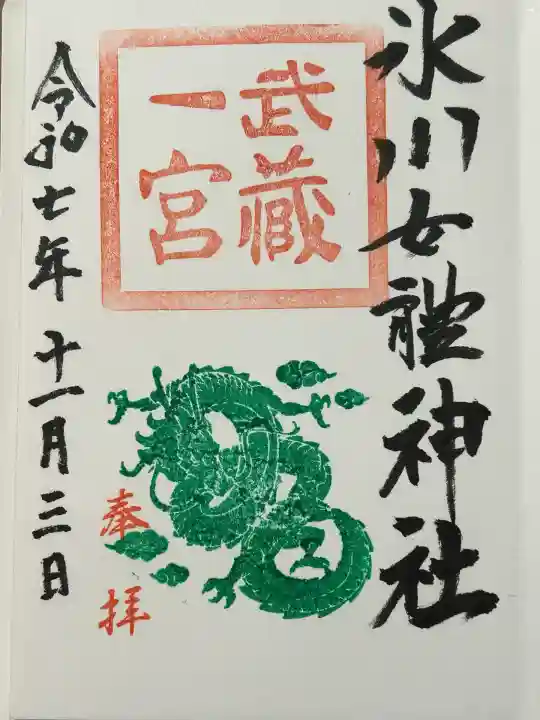 氷川女體神社
武蔵
一宮
奉拝
令和七年十一月三日